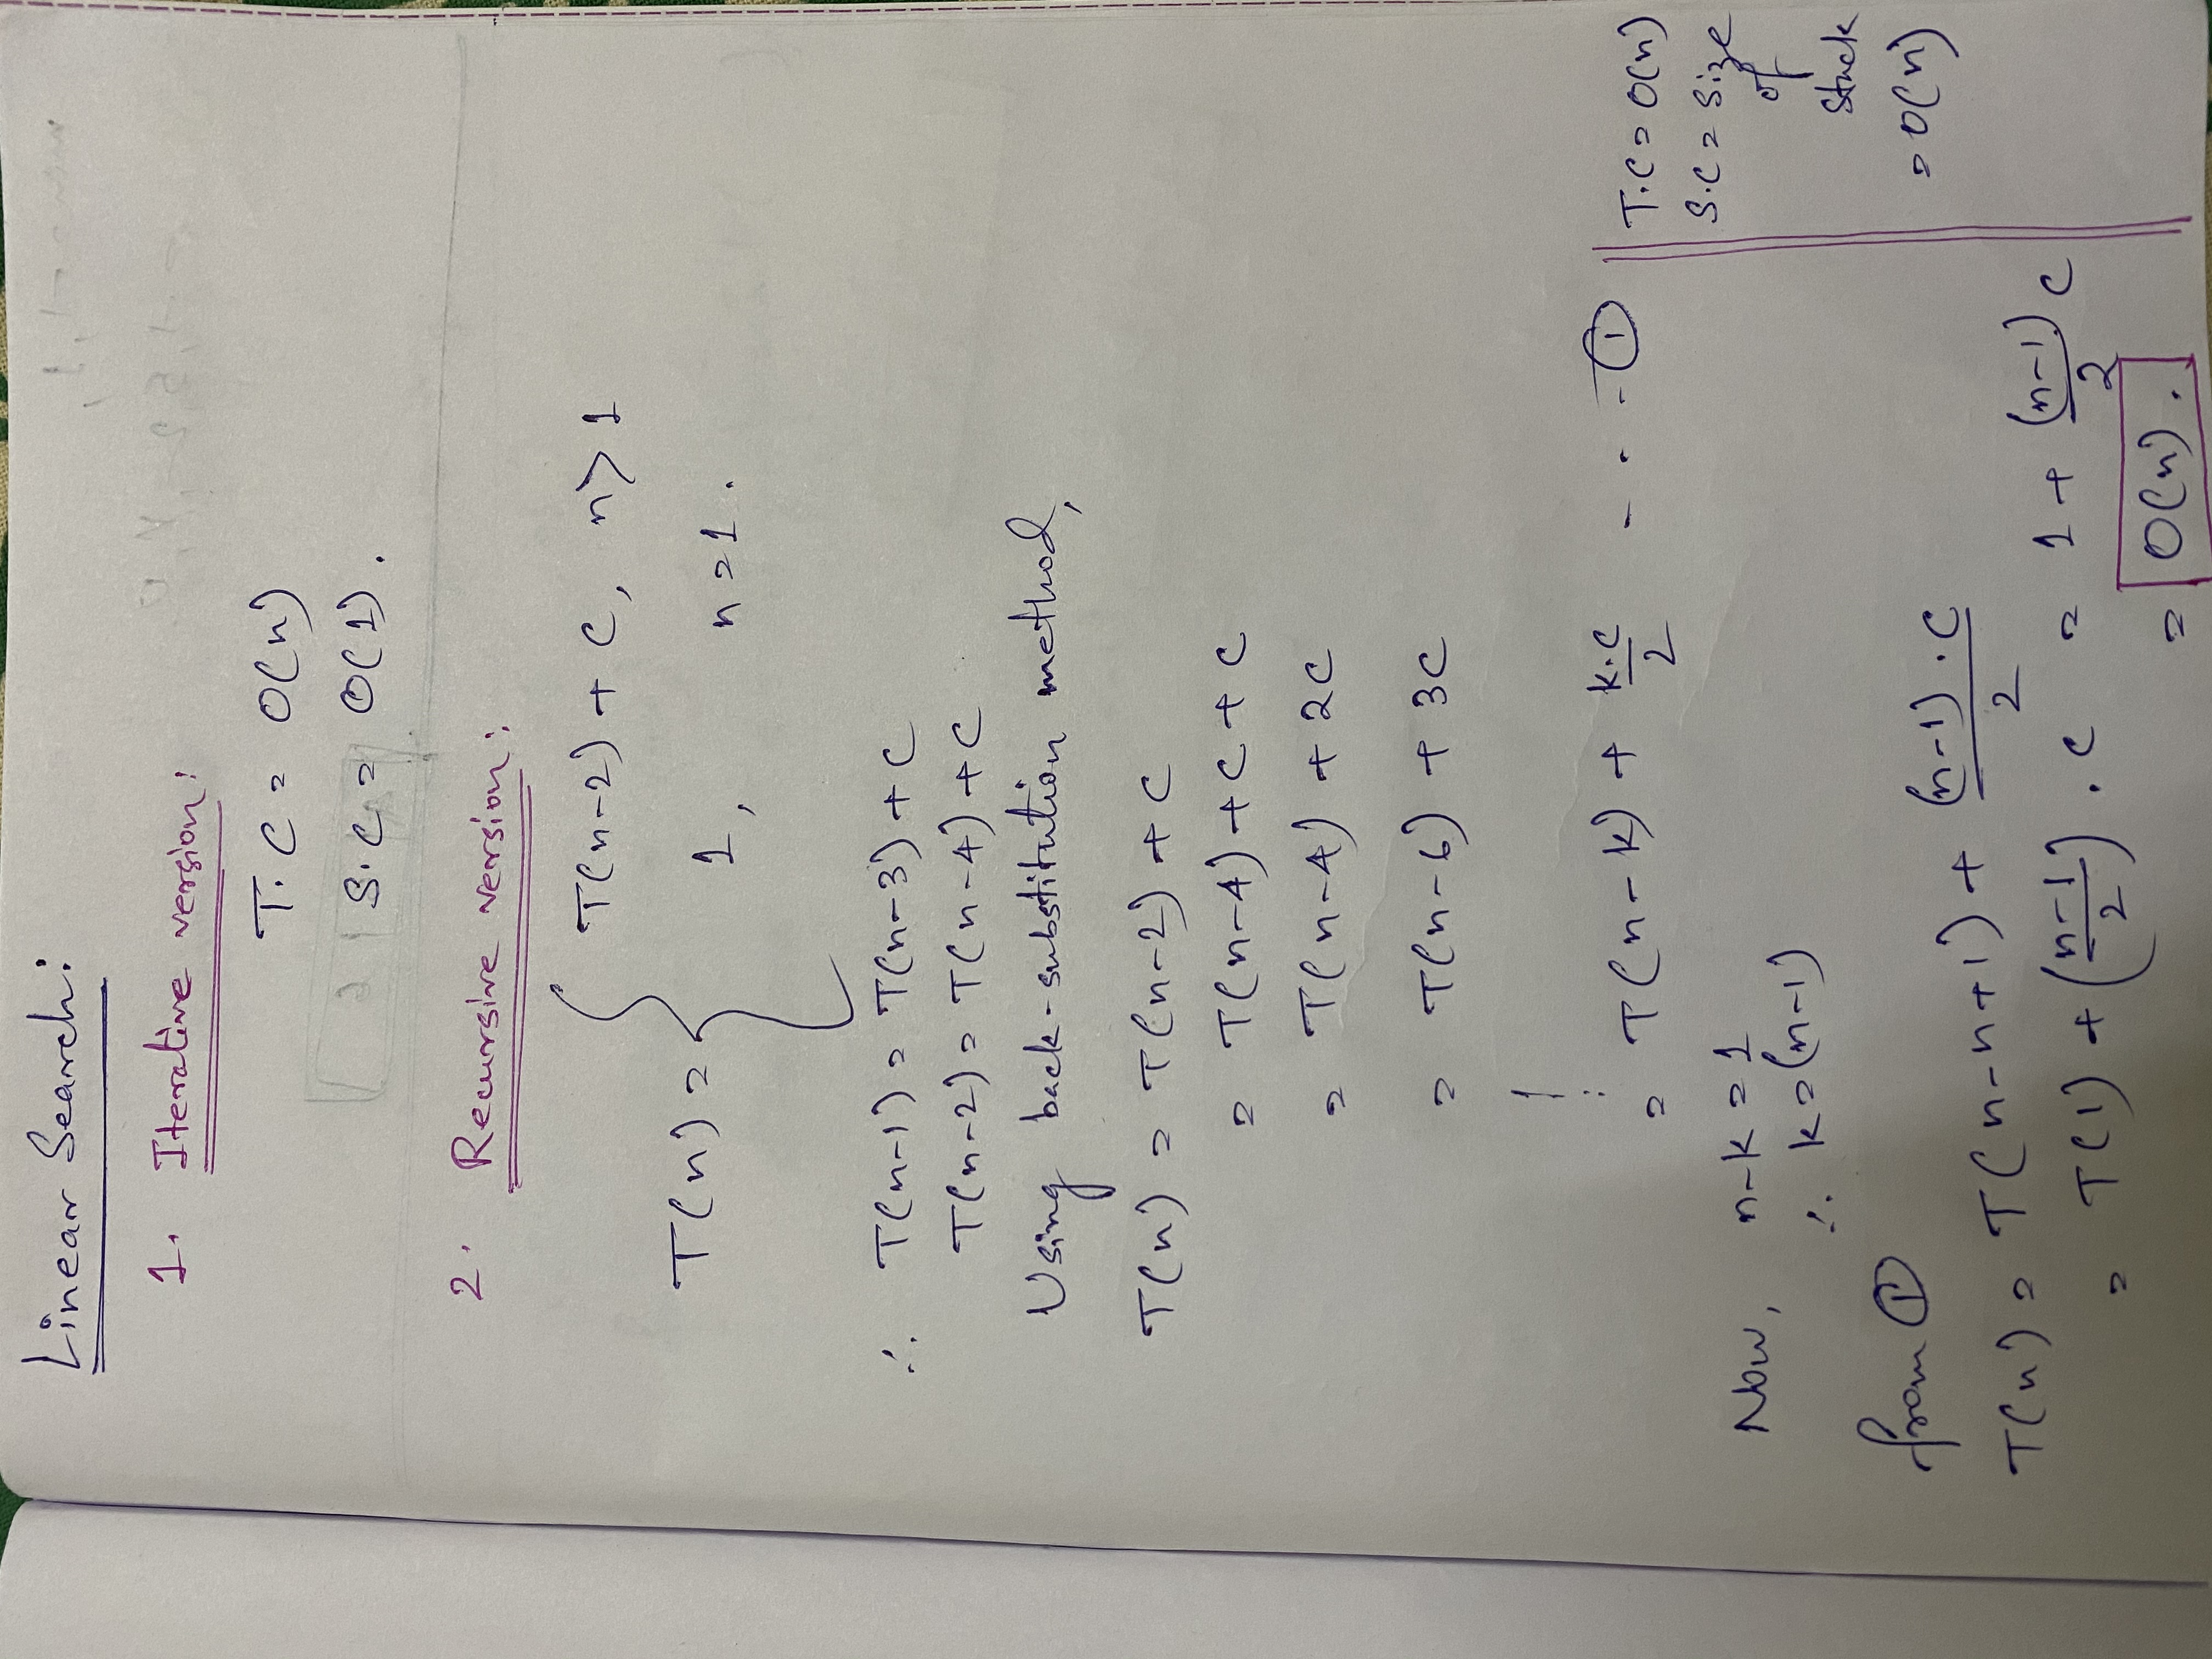 Linear Search:
1. Iterative version:
T.C = O(n)
S.C = O(1).
2. Recursive version:
T(n) = { T(n-2) + C, n>1
1, n=1.
∴ T(n-1) = T(n-3) + C
T(n-2) = T(n-4) + C
Using back-substitution method,
T(n) = T(n-2) + C
= T(n-4) + C + C
= T(n-4) + 2C
= T(n-6) + 3C
= T(n-k) + k.C/2 - - - ①
Now, n-k = 1
∴ k = (n-1)
from ①
T(n) = T(n-n+1) + (n-1).C/2
= T(1) + (n-1/2).C = 1 + (n-1)/2 C
= O(n).
T.C = O(n)
S.C = Size
of
Stack
= O(n)